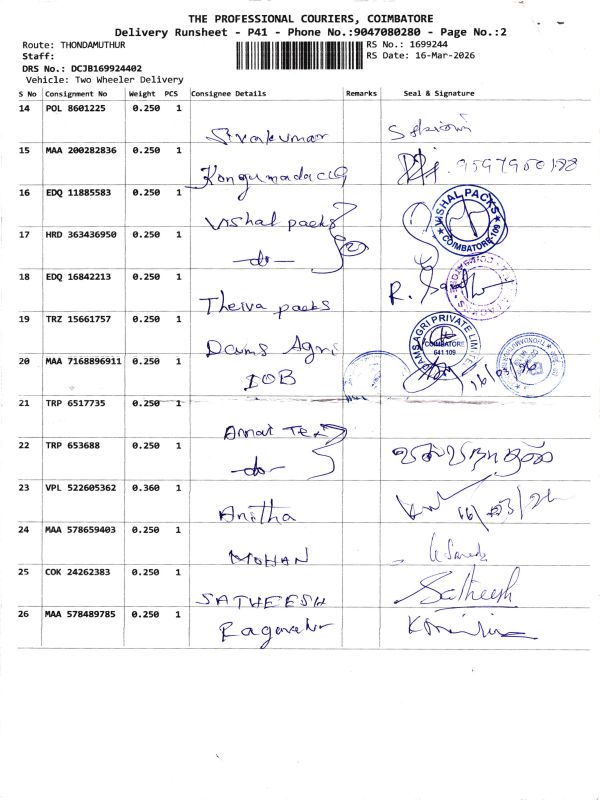 THE PROFESSIONAL COURIERS, COIMBATORE
Delivery Runsheet - P41 - Phone No.:9047080280 - Page No.:2
Route: THONDAMUTHUR
RS No.: 1699244
Staff:
RS Date: 16-Mar-2026
DRS No.: DCJB169924402
Vehicle: Two Wheeler Delivery
S No Consignment No Weight PCS Consignee Details Remarks Seal & Signature
14 POL 8601225 0.250 1
Sivakumar
15 MAA 200282836 0.250 1
16 EDQ 11885583 0.250 1
Vishal packs
VISHAL PACKS
COIMBATORE-109
17 HRD 363436950 0.250 1
-do-
18 EDQ 16842213 0.250 1
Theiva packs
R.
19 TRZ 15661757 0.250 1
Dams Agri
DAMS AGRI PRIVATE LIMITED
COIMBATORE
641 109
20 MAA 7168896911 0.250 1
IOB
16/03/26
21 TRP 6517735 0.250 1
Annai Tex
22 TRP 653688 0.250 1
-do-
23 VPL 522605362 0.360 1
Anitha
16/03/26
24 MAA 578659403 0.250 1
MOHAN
25 COK 24262383 0.250 1
SATHEESH
Satheesh
26 MAA 578489785 0.250 1